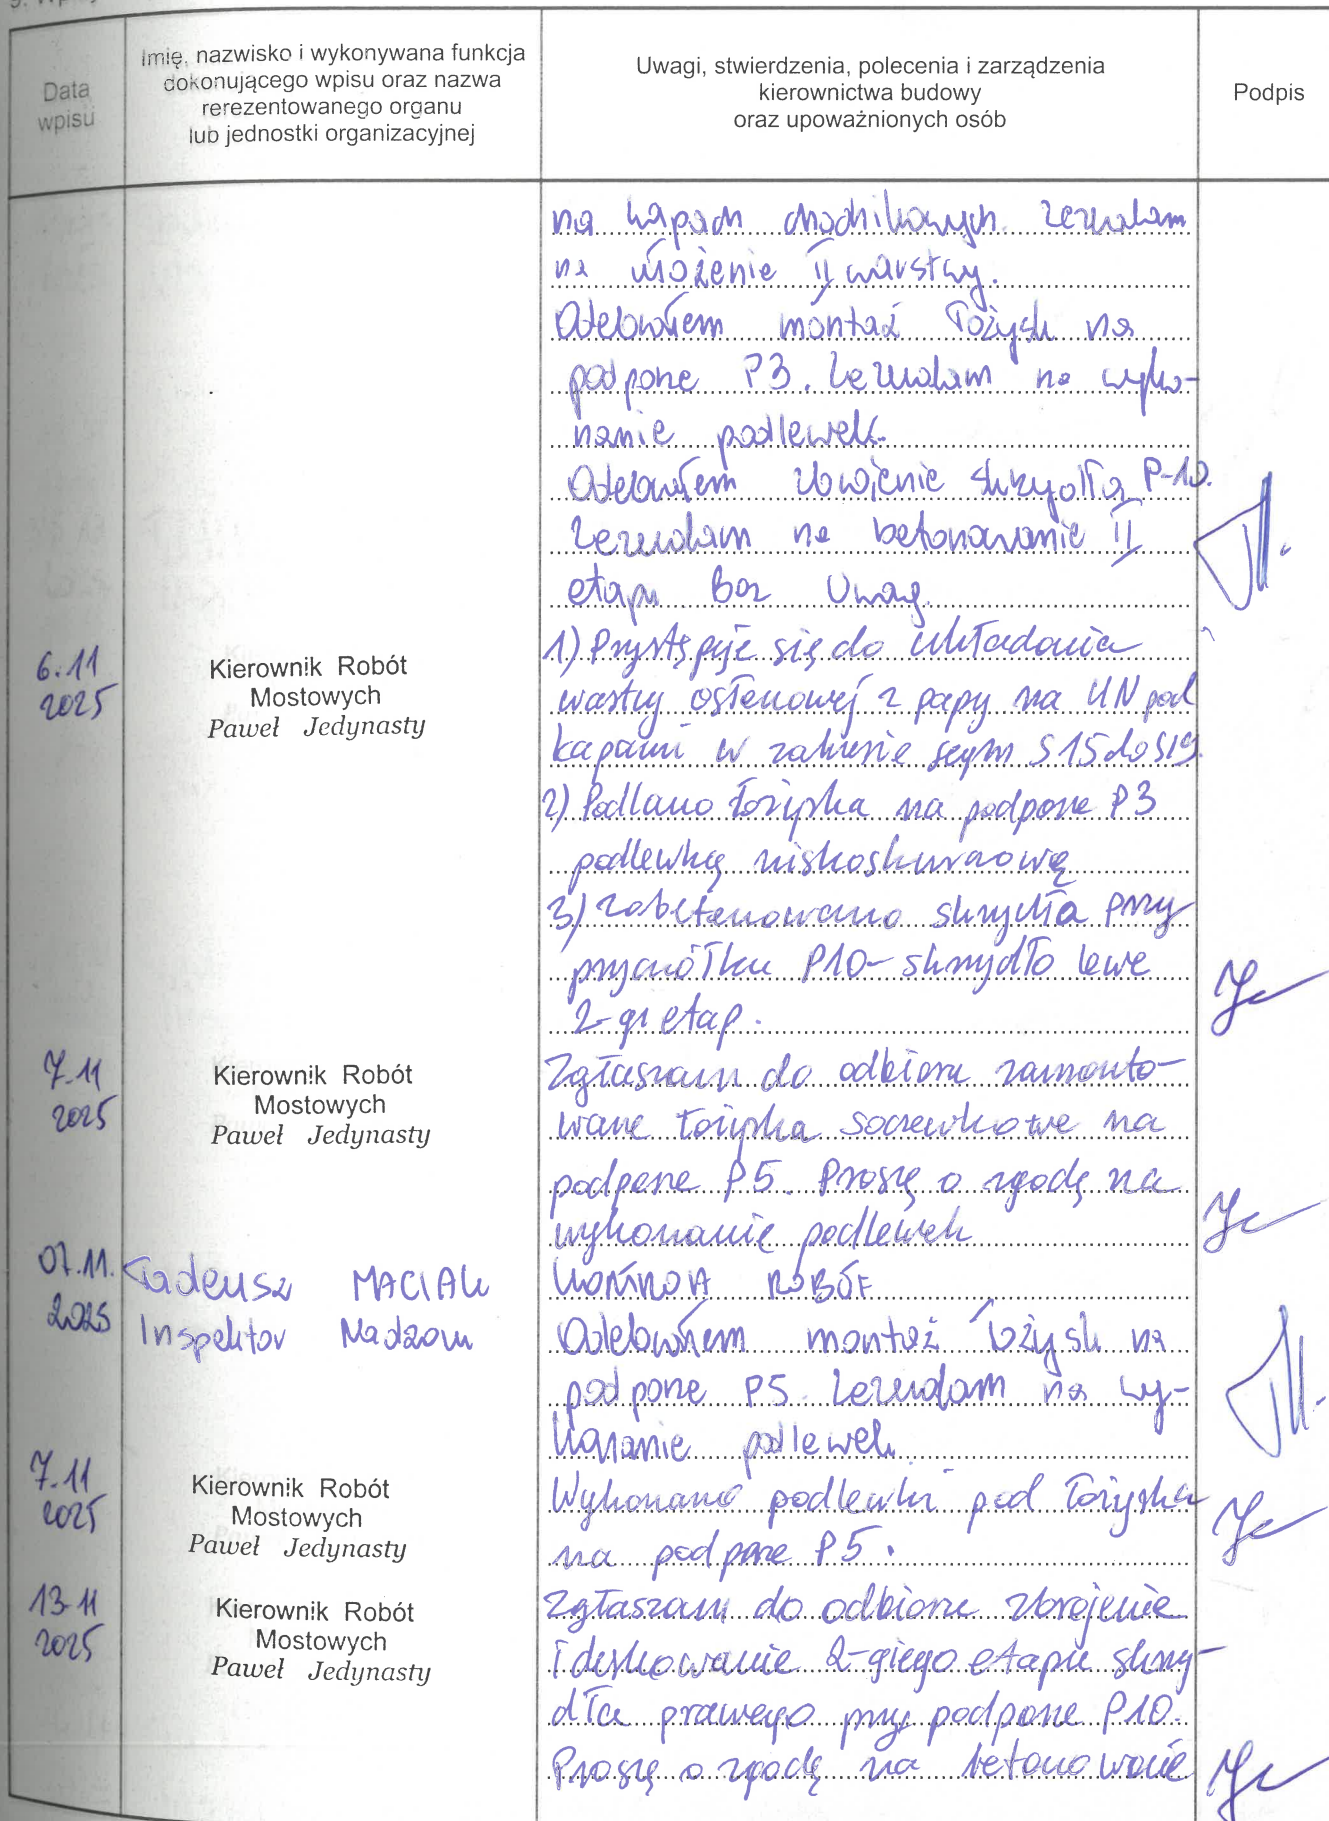 Data
wpisu
Imię, nazwisko i wykonywana funkcja
dokonującego wpisu oraz nazwa
rerezentowanego organu
lub jednostki organizacyjnej
Uwagi, stwierdzenia, polecenia i zarządzenia
kierownictwa budowy
oraz upoważnionych osób
Podpis
na kapach chodnikowych. Zezwalam
na ułożenie II warstwy.
Odebrałem montaż łożysk na
podporze P3. Zezwalam na wyko-
nanie podlewek.
Odebrałem zbrojenie skrzydła P-10.
Zezwalam na betonowanie II
etapu Bez Uwag.
6.11
2025
Kierownik Robót
Mostowych
Paweł Jedynasty
1) Przystępuje się do układania
warstwy osłonowej z papy na UN pod
kapami w zakresie segm S15 do S19.
2) Podlano łożyska na podporze P3
podlewką niskoskurczową
3) Zabetonowano skrzydła przy
przyczółku P10 - skrzydło lewe
2-gi etap.
7.11
2025
Kierownik Robót
Mostowych
Paweł Jedynasty
Zgłaszam do odbioru zamonto-
wane łożyska soczewkowe na
podporze P5. Proszę o zgodę na
wykonanie podlewek
07.11.
2025
Tadeusz MACIAK
Inspektor Nadzoru
KONTROLA ROBÓT
Odebrałem montaż łożysk na
podporze P5. Zezwalam na wy-
konanie podlewek.
7.11
2025
Kierownik Robót
Mostowych
Paweł Jedynasty
Wykonano podlewki pod łożyska
na podporze P5.
13.11
2025
Kierownik Robót
Mostowych
Paweł Jedynasty
Zgłaszam do odbioru zbrojenie
i deskowanie 2-giego etapu skrzy-
dła prawego przy podporze P10.
Proszę o zgodę na betonowanie